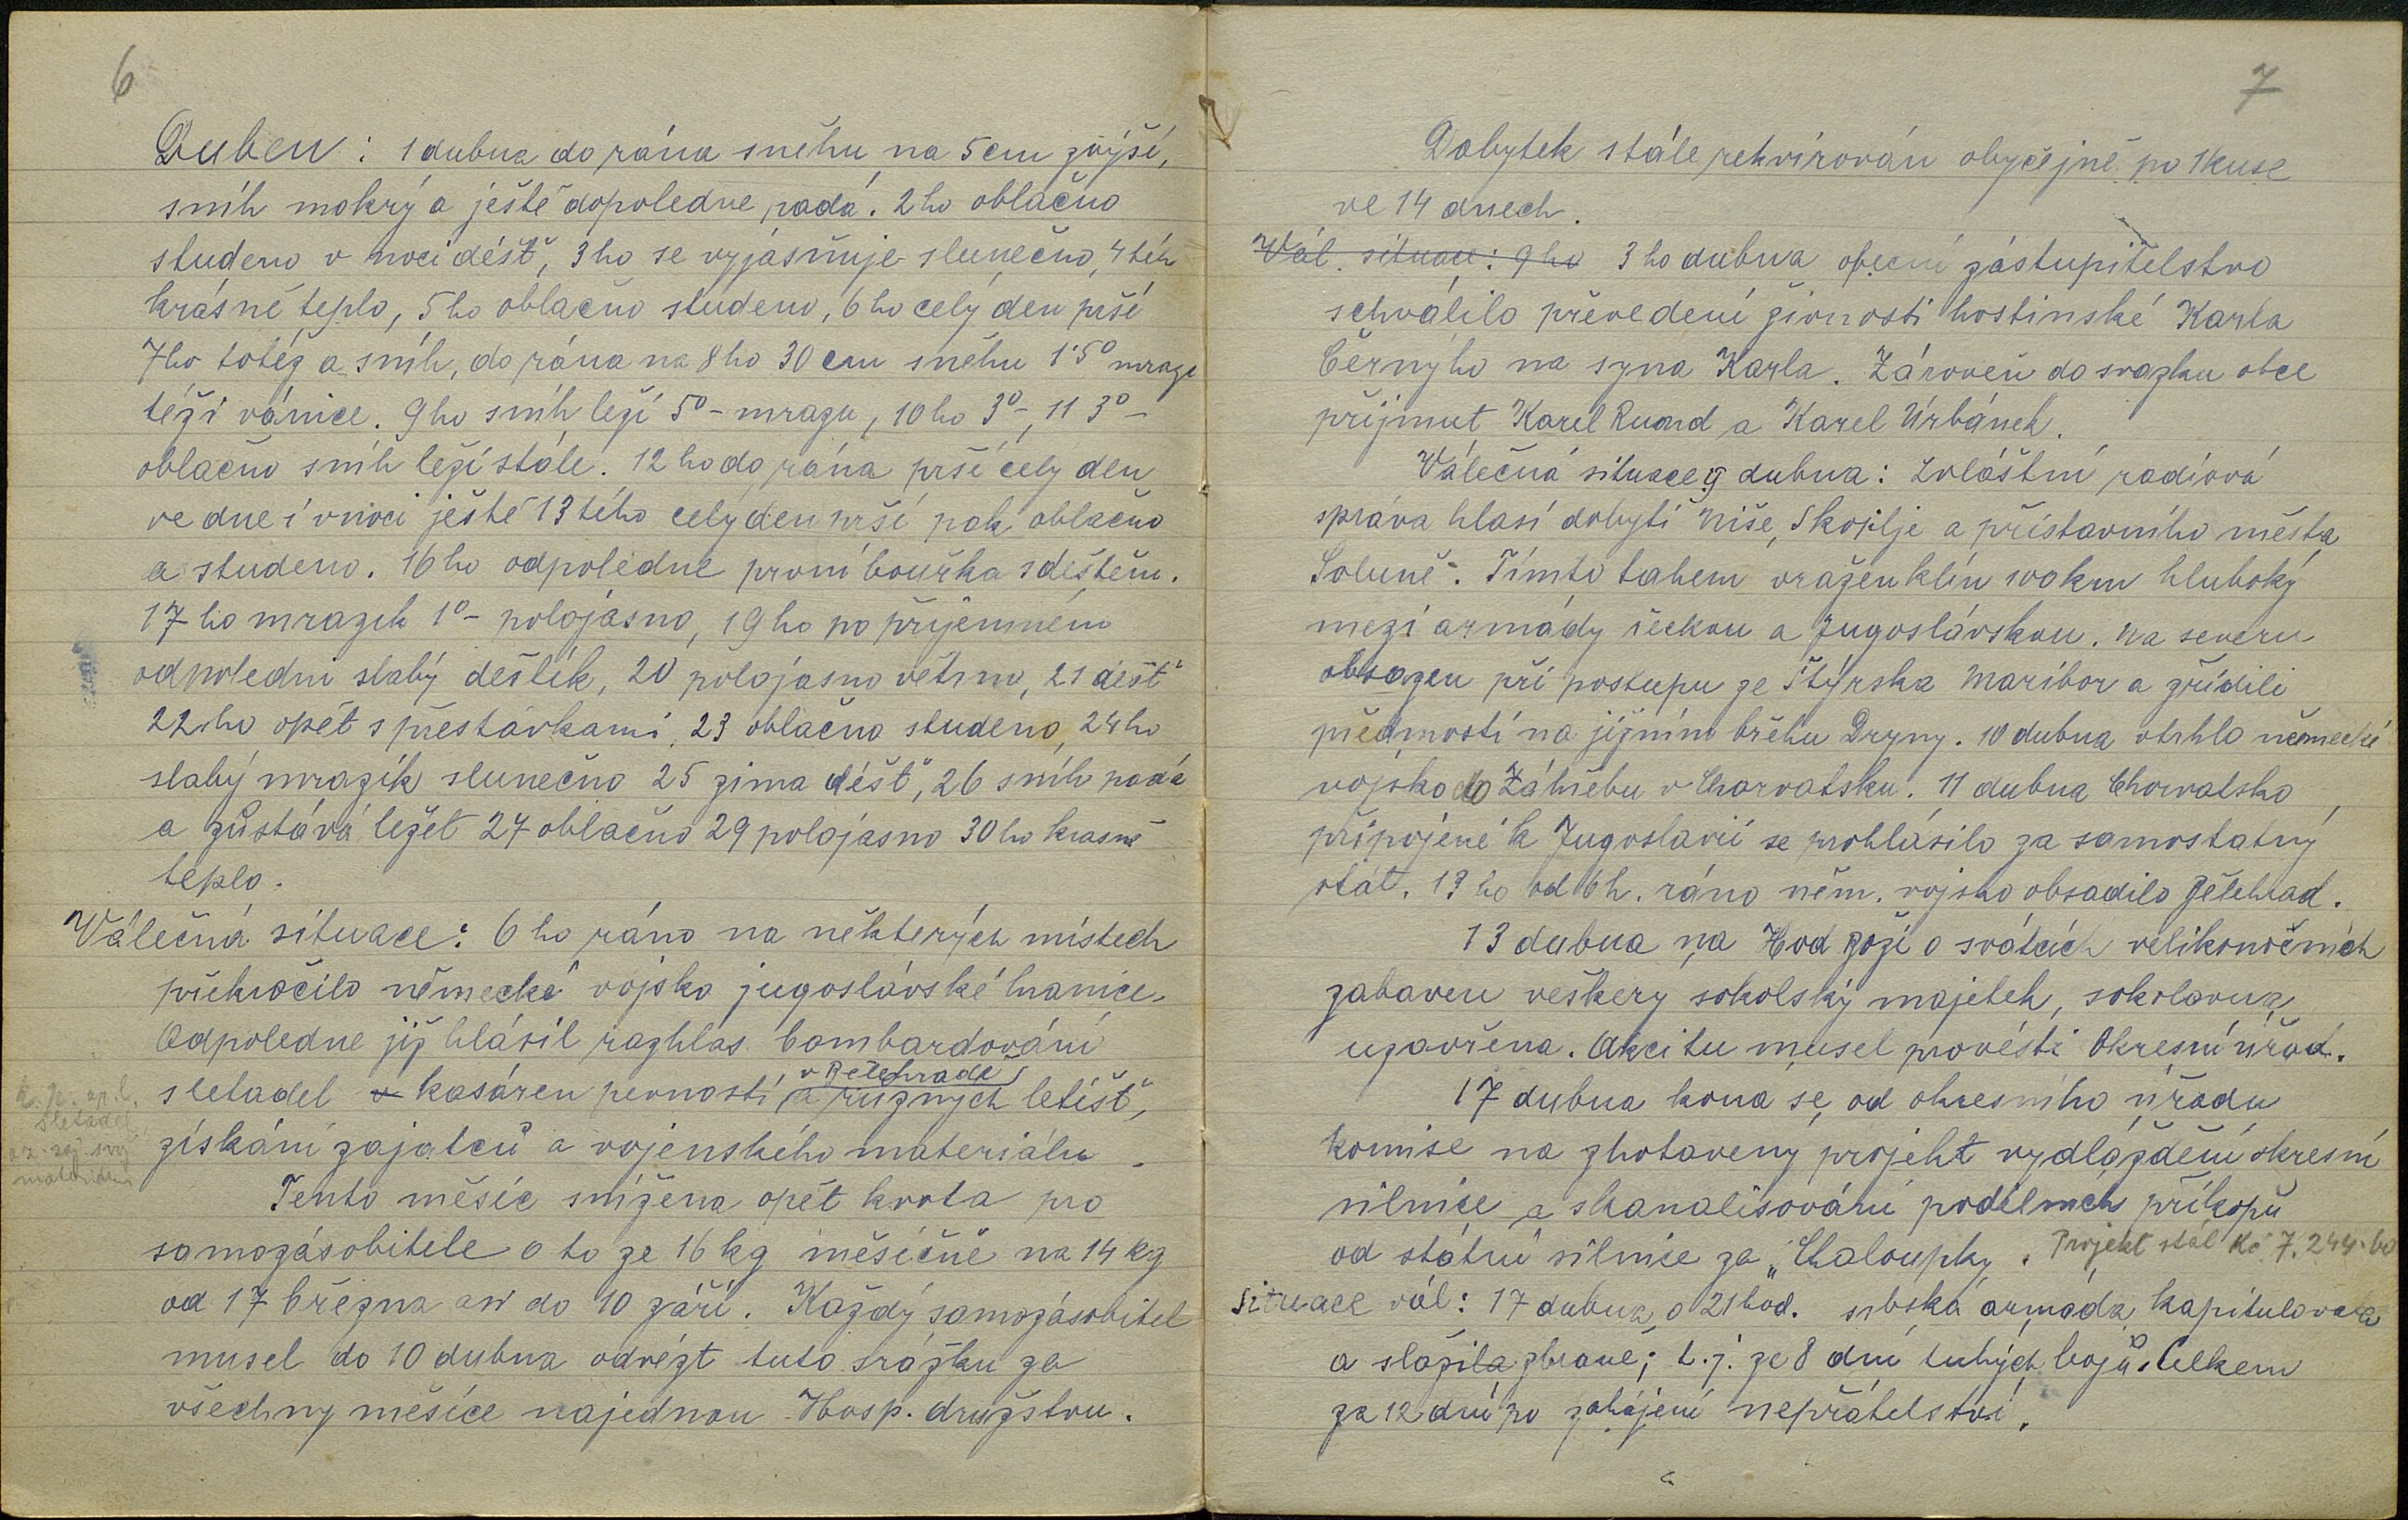 6
Duben: 1 dubna do rána sněhu na 5 cm zvýší,
sníh mokrý a ještě dopoledne padá. 2 ho oblačno
studeno v noci déšť, 3 ho se vyjasňuje slunečno, 4 téh
krásně teplo, 5 ho oblačno studeno, 6 ho celý den prší
7 ho totéž a sníh, do rána na 8 ho 30 cm sněhu 1·5° mrazu
též i vánice. 9 ho sníh leží 5°- mrazu, 10 ho 3°-, 11 3°-
oblačno sníh leží stále. 12 ho do rána prší celý den
ve dne i v noci ještě 13 tého celý den prší pak oblačno
a studeno. 16 ho odpoledne první bouřka s deštěm.
17 ho mrazík 1°- polojasno, 19 ho po příjemném
odpoledni slabý deštík, 20 polojasno větrno, 21 déšť
22 ho opět s přestávkami, 23 oblačno studeno, 24 ho
slabý mrazík slunečno 25 zima déšť, 26 sníh padá
a zůstává ležet 27 oblačno 29 polojasno 30 ho krasně
teplo.
Válečná situace: 6 ho ráno na některých místech
překročilo německé vojsko jugoslávské hranice.
Odpoledne již hlásil rozhlas bombardování
v Bělehradě
s letadel kasáren pevností a různých letišť,
získání zajatců a vojenského materiálu.
Sletadel
Tento měsíc snížena opět kvota pro
samozásobitele o to ze 16 kg měsíčně na 14 kg
od 17 března až do 10 září. Každý samozásobitel
musel do 10 dubna odvézt tuto srážku za
všechny měsíce najednou Hosp. družstvu.
7
Dobytek stále rekvirován obyčejně po 1 kuse
ve 14 dnech.
Vál. situace: 9 ho 3 ho dubna obecní zástupitelstvo
schválilo převedení živnosti hostinské Karla
Černýho na syna Karla. Zároveň do svazku obce
přijmut Karel Ruand a Karel Urbánek.
Válečná situace 9 dubna: Zvláštní radiová
správa hlasí dobytí Niše, Skoplje a přístavního města
Soluně. Tímto tahem vražen klín hluboký
mezi armády řeckou a Jugoslávskou. Na severu
obsazen při postupu ze Štýrska Maribor a zřídili
předmostí na jižním břehu Dryny. 10 dubna vtrhlo německé
vojsko do Záhřebu v Charvatsku. 11 dubna Chorvatsko
připojené k Jugoslavii se prohlásilo za samostatný
stát. 13 ho od 6 h. ráno něm. vojsko obsadilo Bělehrad.
13 dubna na Hod Boží o svátcích velikonočních
zabaven veškery sokolský majetek, sokolovna
uzavřena. Akci tu musel provésti Okresní úřad.
17 dubna kona se od okresního úřadu
komise na zhotoveny projekt vydláždění okresní
silnice a skanalisování podélnych příkopů
od státní silnice za „Chaloupky. Projekt stál Kč 7.244·60
Situace vál: 17 dubna o 21 hod. srbská armáda kapitulovala
a složila zbraně; t.j. ze 8 dní tuhých bojů. Celkem
za 12 dní po zahájení nepřátelství.